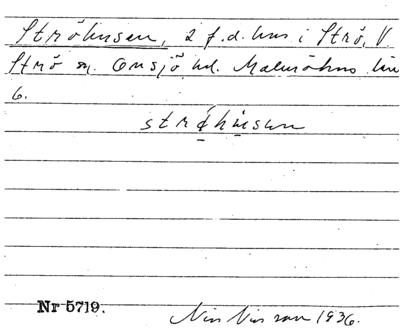 Ströhusen, 2 f.d. hus i Strö, V.
Strö sn. Onsjö hd. Malmöhus län
6.
ströhusen
Nr 5719.
Nils Nilsson 1936.